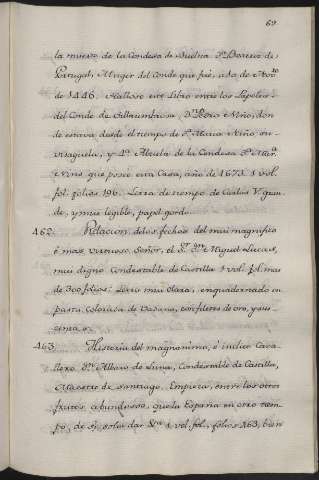 69
la muerte de la Condesa de Buelna D.ª Beatriz de
Portugal, Muger del Conde que fué, a 10 de Nov.re
de 1446. Hallose este Libro entre los Papeles
del Conde de Villaumbrosa, D.n Pedro Niño, don
de estava desde el tiempo de D.ª Maria Niño, su
visaguela, y 4.ª Abuela de la Condesa D.ª Mar.ª
Niño que poseé esta Casa, año de 1673. 1 vol.
fol. folios 196. Letra de tiempo de Carlos V. gran
de, y mui legible, papel gordo.
462 Relacion de los fechos del mui magnifico
é mas virtuoso Señor, el S.or D.n Miguel Lucas,
mui digno Condestable de Castilla 1 vol. fol. mas
de 300 folios. Letra mui clara, enquadernado en
pasta, Colorada de Badana, con filetes de oro, y sus
cintas.
463 Historia del magnanimo, é inclito Cava-
llero D.n Alvaro de Luna, Condestable de Castilla,
Maestre de Santiago. Empieza, entre los otros
frutos abundosos, que la España en otro tiem-
po, de sí solia dar &.ª 1 vol. fol. folios 163, bien